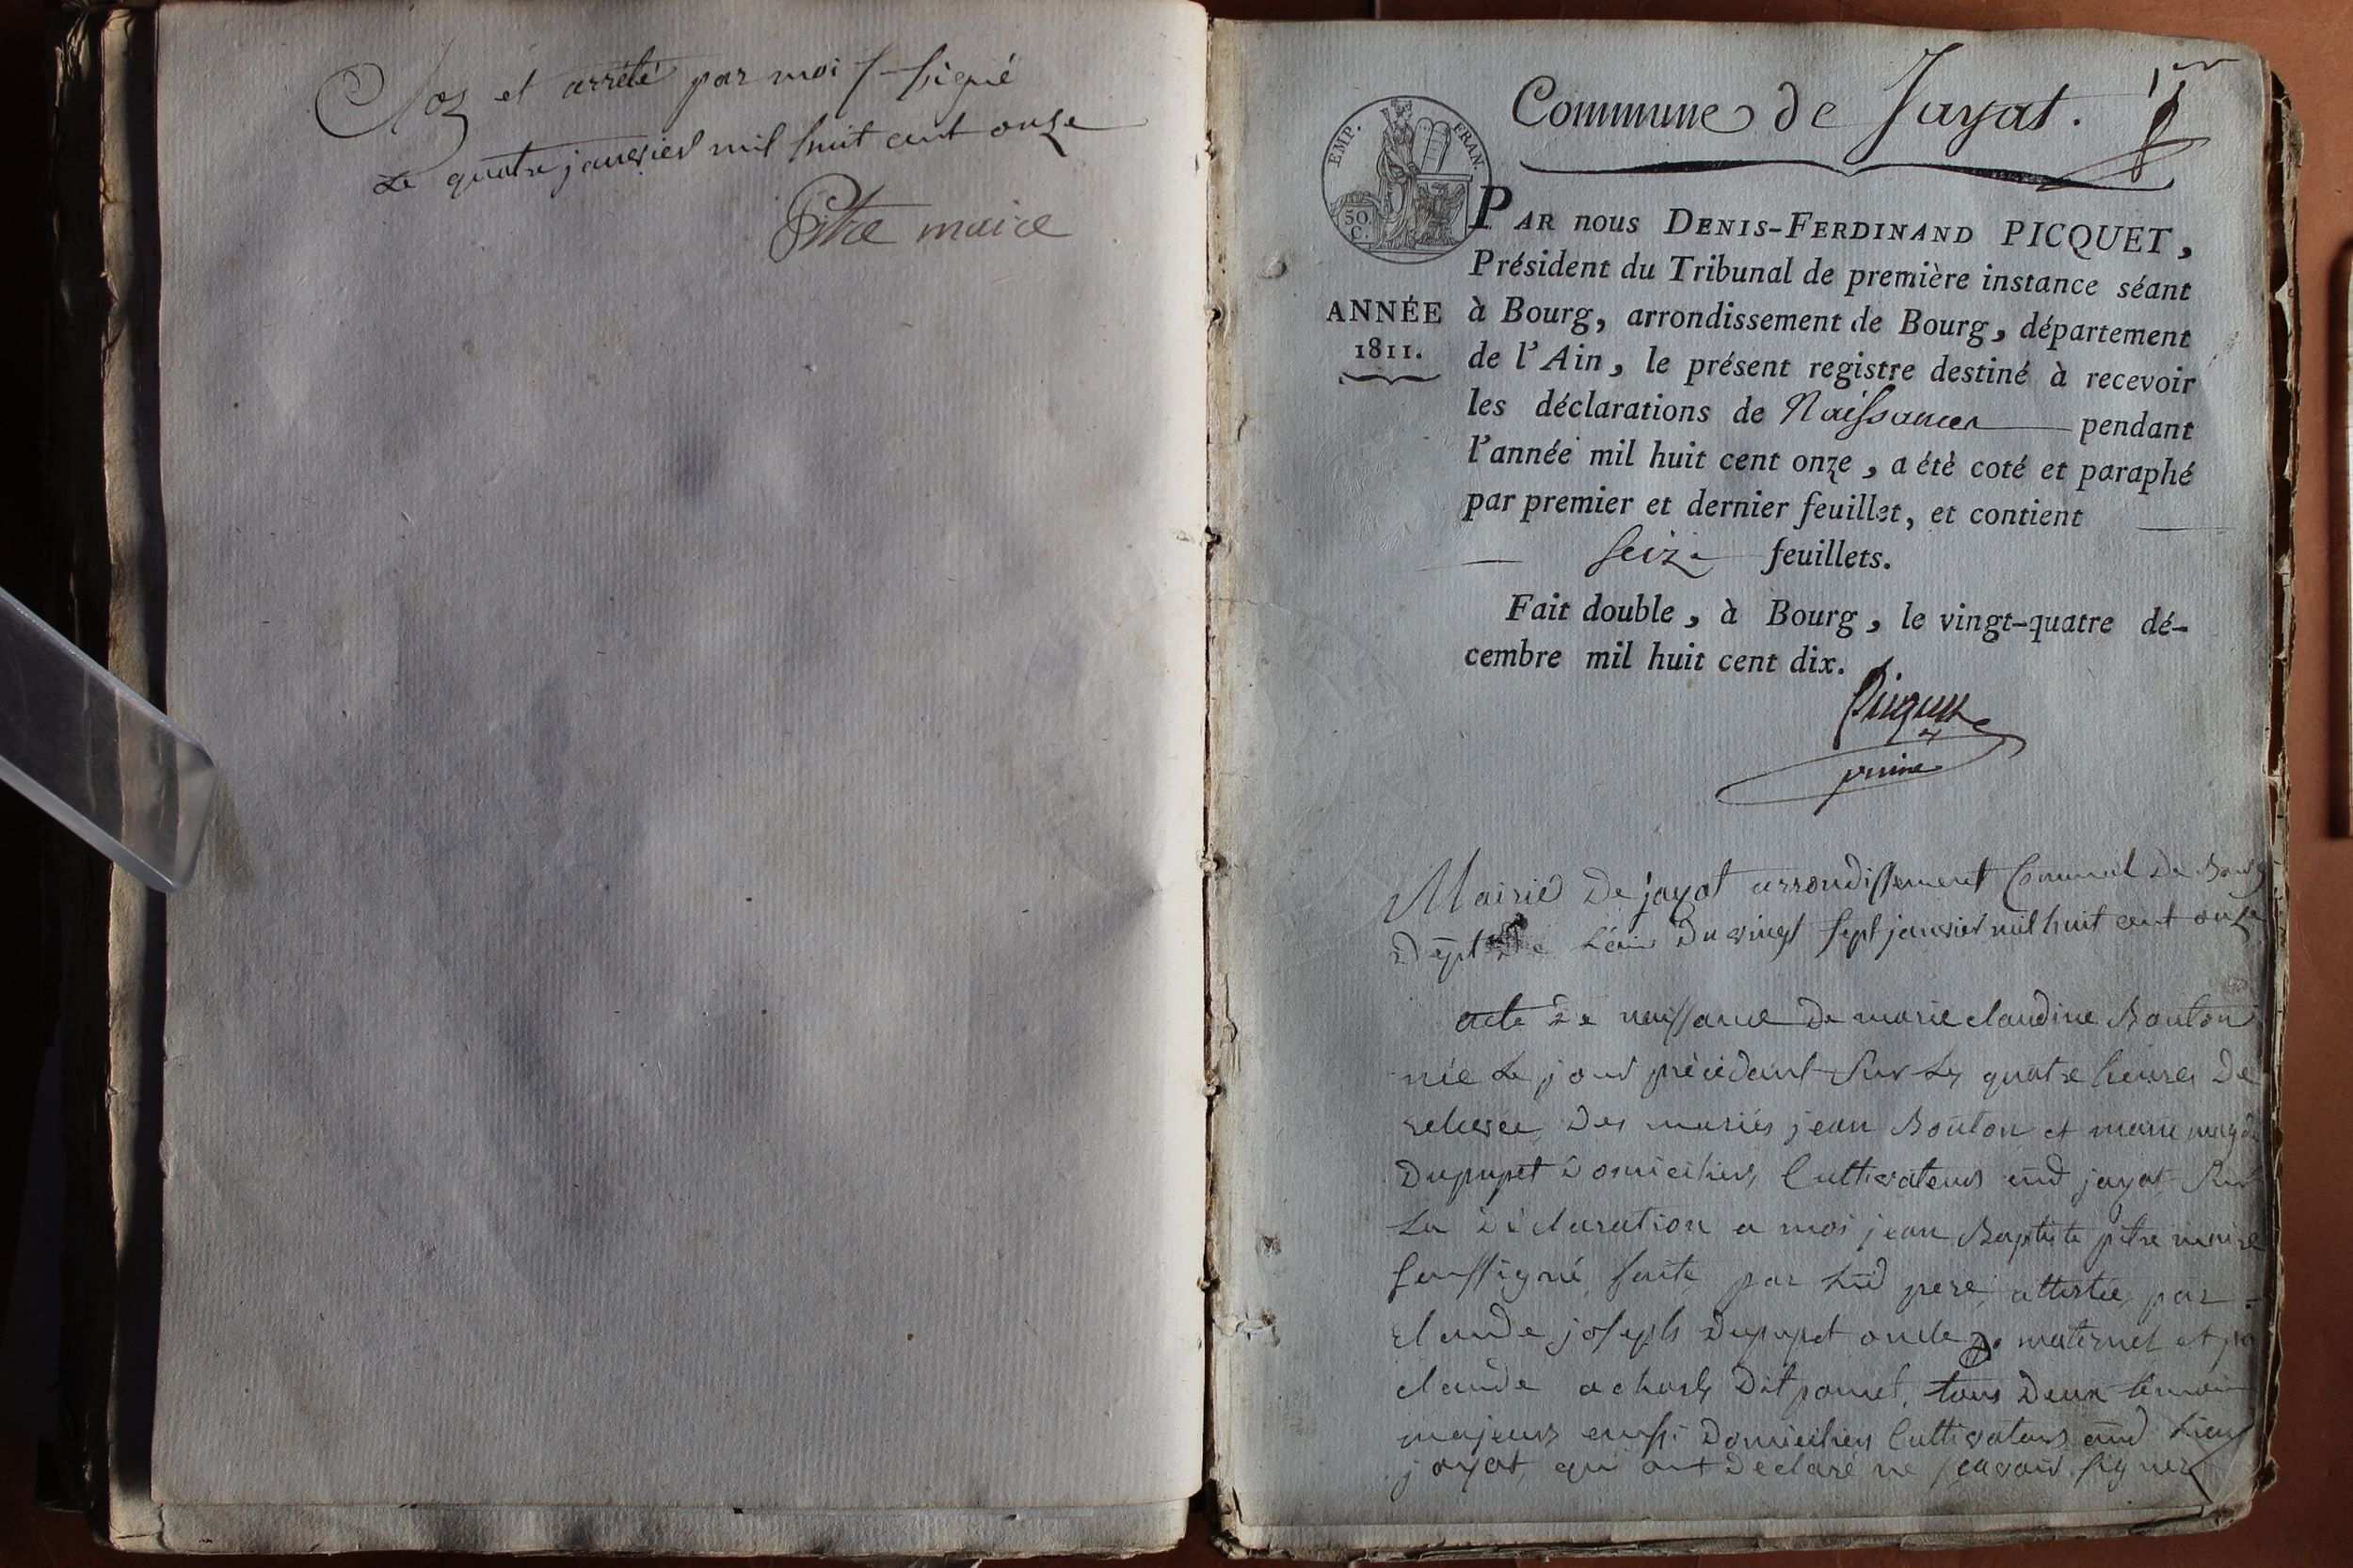 Clos et arrété par moi s-signé
Le quatre janvier mil huit cent onze
Pitre maire
Commune de Jayat.
1er
EMP. FRAN.
50. C.
PAR nous DENIS-FERDINAND PICQUET,
Président du Tribunal de première instance séant
ANNÉE
1811.
à Bourg, arrondissement de Bourg, département
de l'Ain, le présent registre destiné à recevoir
les déclarations de Naissances pendant
l'année mil huit cent onze, a été coté et paraphé
par premier et dernier feuillet, et contient
seize feuillets.
Fait double, à Bourg, le vingt-quatre dé-
cembre mil huit cent dix.
Picquet
Mairie De jayat arrondissement Communal De Bourg
Dépt De L'ain Du vingt sept janvier mil huit cent onze
acte De naissance De marie claudine Bouton
née Le jour précédant Sur Les quatre heures De
relevée, Des mariés jean Bouton et marie
Dupupet Domiciliés Cultivateurs aud jayat Sur
La Déclaration a moi jean Baptiste pitre maire
soussigné faite par Led pere, attestée par
claude joseph Dupupet oncle maternel et
claude Dit pomet, tous Deux témoins
majeurs aussi Domiciliés Cultivateurs aud Lieu
jayat, qui ont Declaré ne sçavoir signer